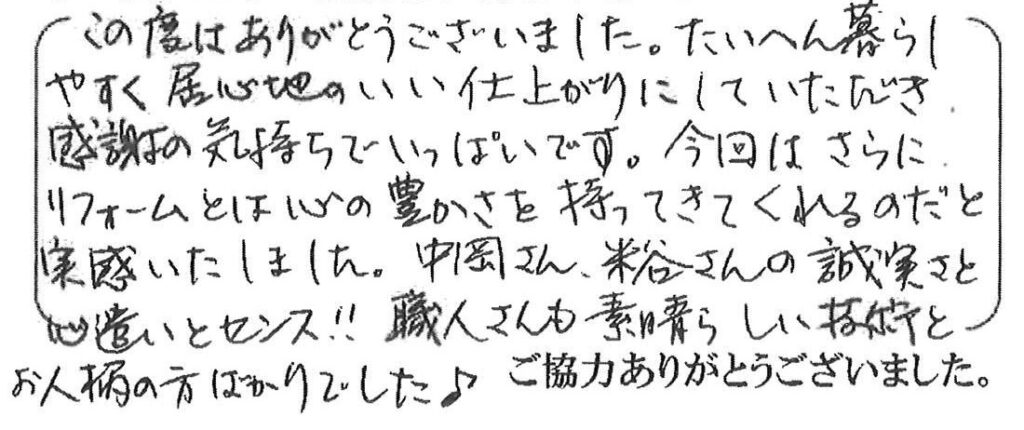 この度はありがとうございました。たいへん暮らし
やすく居心地のいい仕上がりにしていただき
感謝の気持ちでいっぱいです。今回はさらに
リフォームとは心の豊かさを持ってきてくれるのだと
実感いたしました。中岡さん、米谷さんの誠実さと
心遣いとセンス!! 職人さんも素晴らしい技術と
お人柄の方ばかりでした♪ ご協力ありがとうございました。